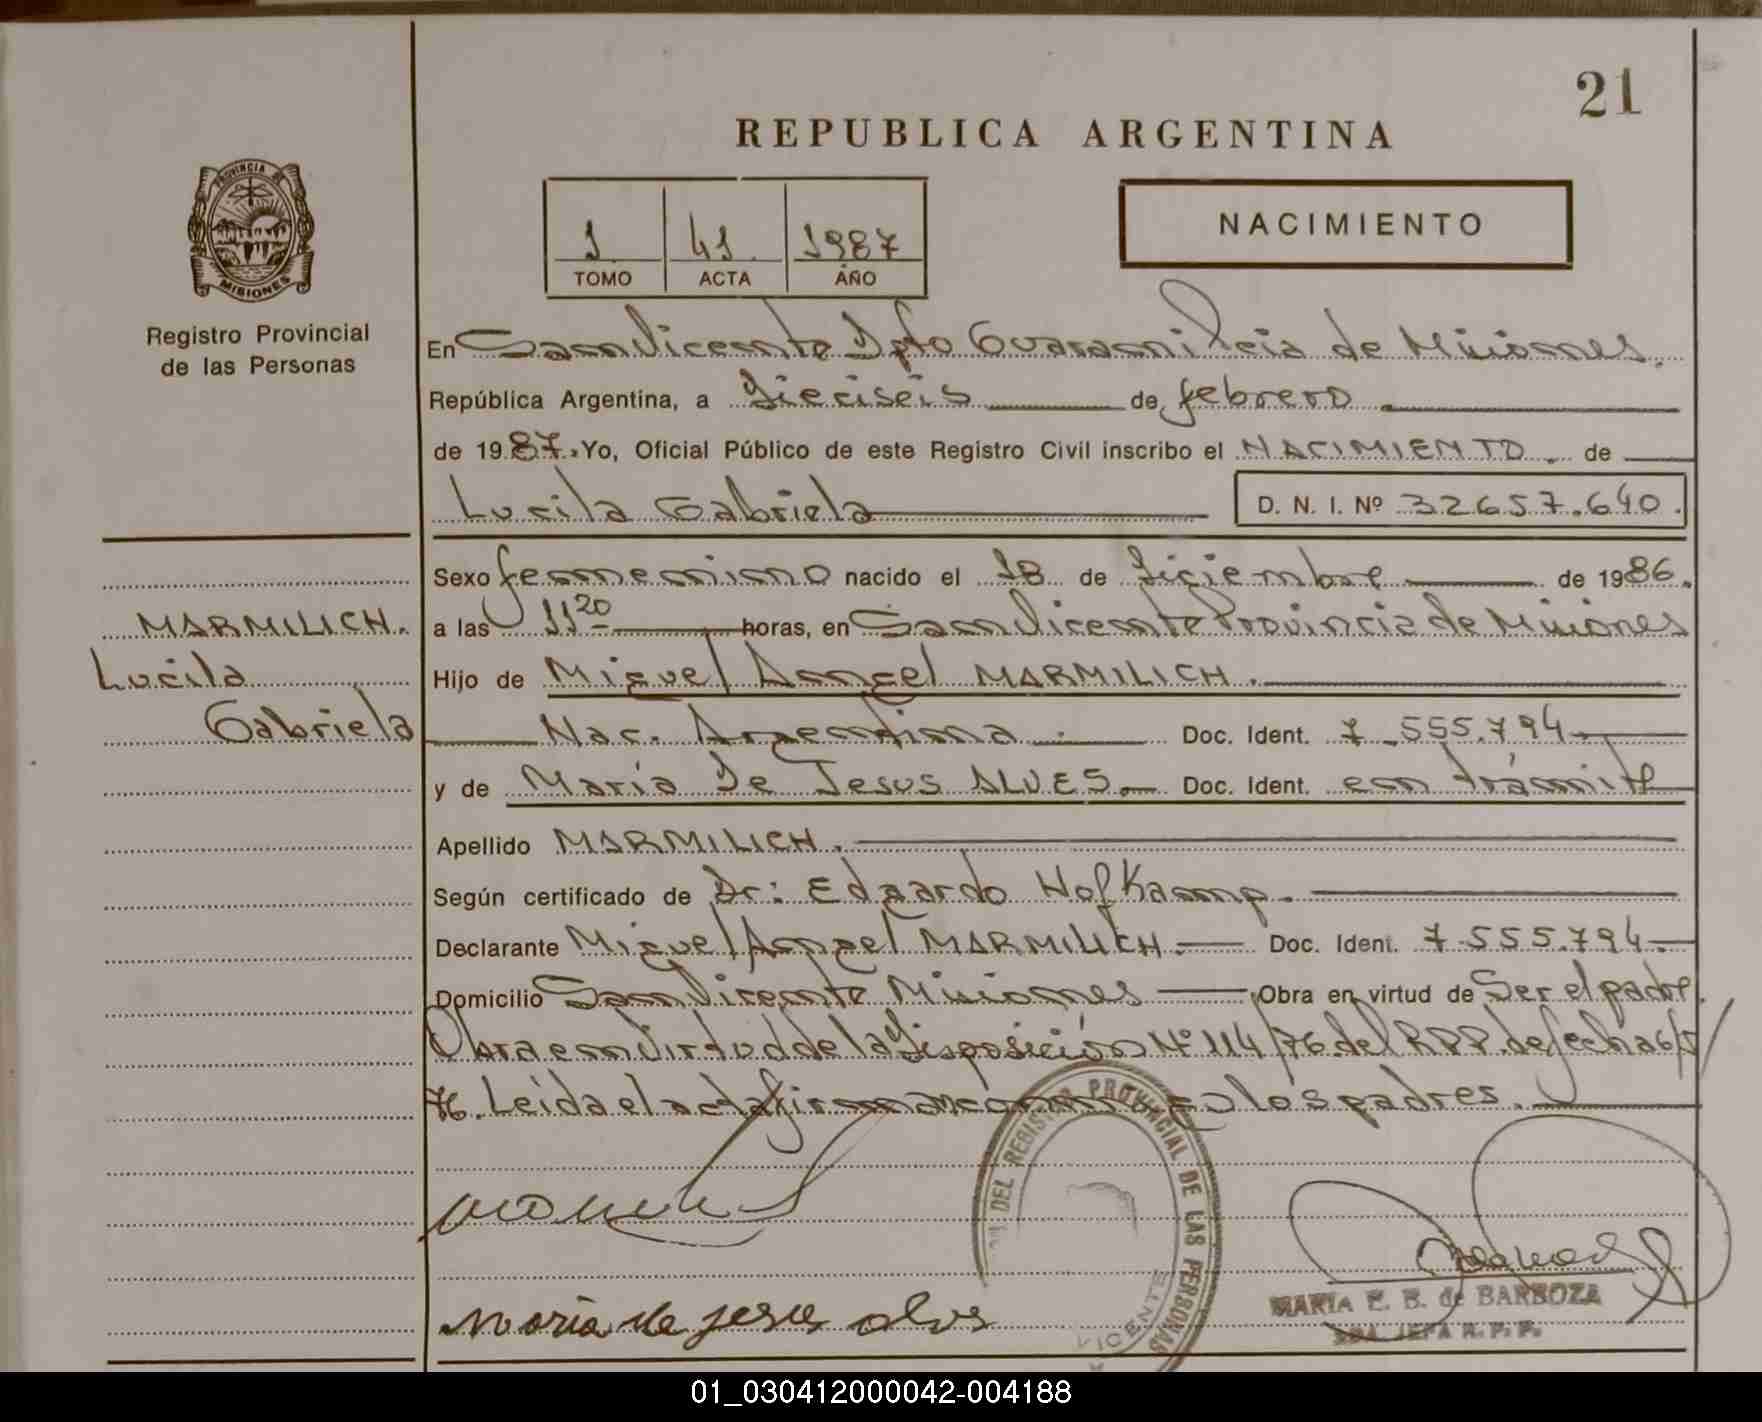 21
REPUBLICA ARGENTINA
PROVINCIA DE
MISIONES
Registro Provincial
de las Personas
1 41 1987
TOMO ACTA AÑO
NACIMIENTO
En San Vicente Dpto Guaraní Pcia de Misiones.
República Argentina, a Dieciseis de febrero
de 1987. Yo, Oficial Público de este Registro Civil inscribo el NACIMIENTO de
Lucila Gabriela D. N. I. Nº 32657.640.
Sexo femenino nacido el 18 de Diciembre de 1986.
a las 11 20 horas, en San Vicente Provincia de Misiones
Hijo de Miguel Angel MARMILICH.
Nac. Argentina Doc. Ident. 7.555.794
y de María De Jesus ALVES. Doc. Ident. en trámite
Apellido MARMILICH.
Según certificado de Dr: Eduardo Hofkamp.
Declarante Miguel Angel MARMILICH. Doc. Ident. 7.555.794
Domicilio San Vicente Misiones Obra en virtud de Ser el padre.
Obra en virtud de la Disposición Nº 114/76 del RPP. de fecha 6/5/
76. Leída el acta firman conmigo los padres.
MARMILICH.
Lucila
Gabriela
DEL REGISTRO PROVINCIAL DE LAS PERSONAS
VICENTE
maria de jesus alves
MARIA E. B. de BARBOZA
JEFA R. P. P.
01_030412000042-004188